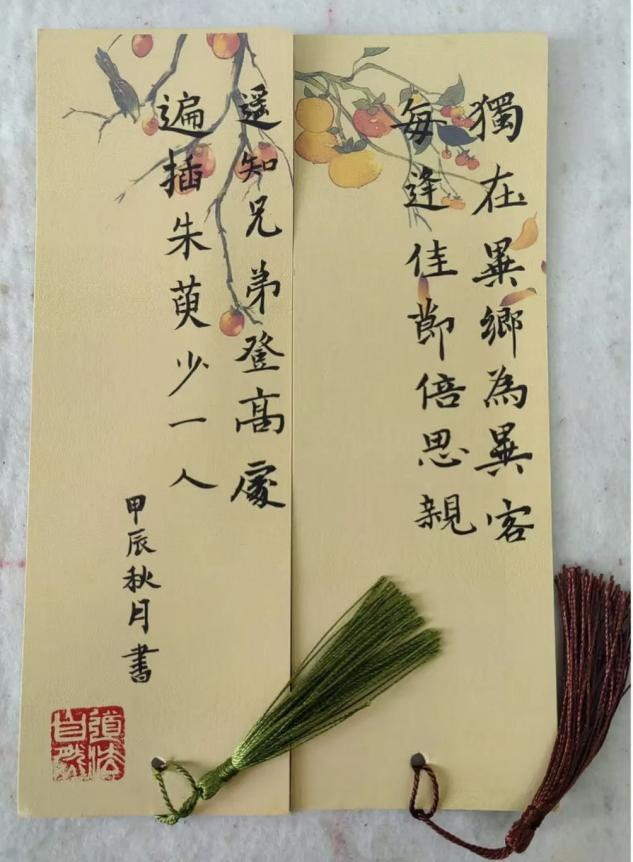 獨在異鄉為異客
每逢佳節倍思親
遥知兄弟登高處
遍插朱萸少一人
甲辰秋月書
道法自然